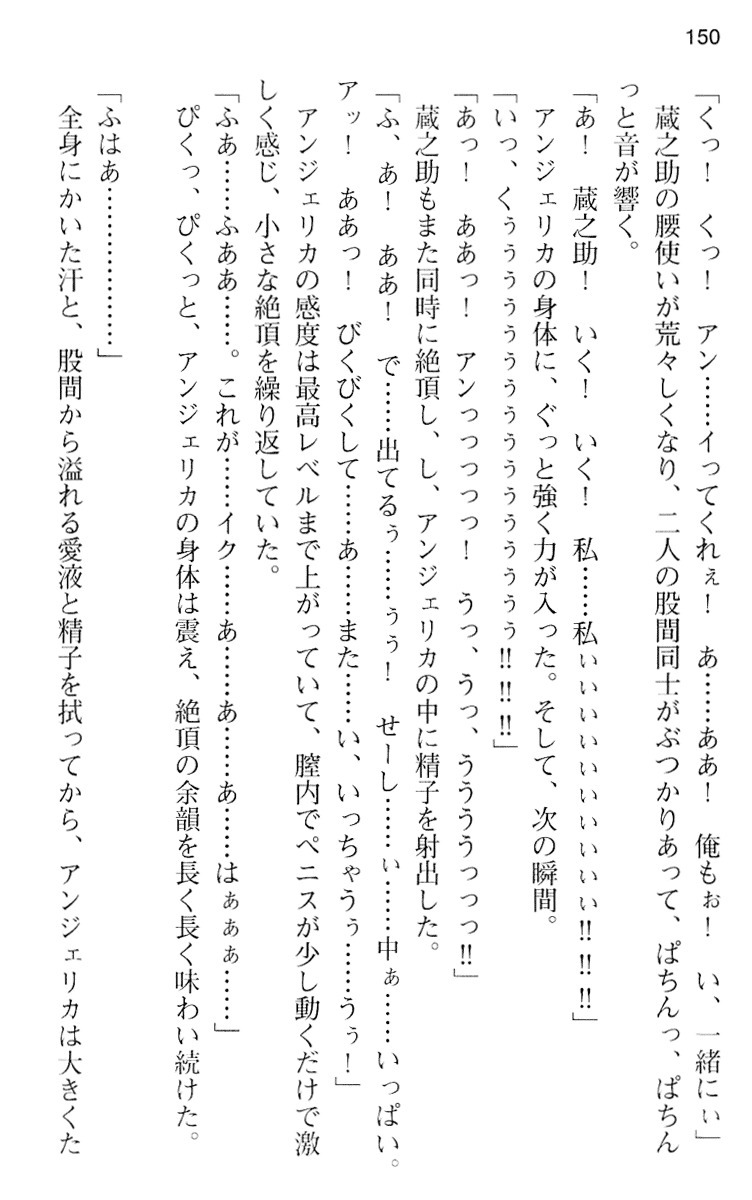 150
「くっ！　くっ！　アン……イってくれぇ！　あ……ああ！　俺もぉ！　い、一緒にぃ」
　蔵之助の腰使いが荒々しくなり、二人の股間同士がぶつかりあって、ぱちんっ、ぱちん
っと音が響く。
「あ！　蔵之助！　いく！　いく！　私……私ぃぃぃぃぃぃぃぃぃぃ‼‼‼」
　アンジェリカの身体に、ぐっと強く力が入った。そして、次の瞬間。
「いっ、くぅぅぅぅぅぅぅぅぅぅぅぅぅぅぅ‼‼‼」
「あっ！　ああっ！　アンっっっっっ！　うっ、うっ、ううううっっっ‼」
　蔵之助もまた同時に絶頂し、し、アンジェリカの中に精子を射出した。
「ふ、あ！　ああ！　で……出てるぅ……ぅぅ！　せーし……ぃ……中ぁ……いっぱい。
アッ！　ああっ！　びくびくして……あ……また……い、いっちゃうぅ……うぅ！」
　アンジェリカの感度は最高レベルまで上がっていて、膣内でペニスが少し動くだけで激
しく感じ、小さな絶頂を繰り返していた。
「ふあ……ふああ……。これが……イク……あ……あ……あ……はぁぁぁ……」
　ぴくっ、ぴくっと、アンジェリカの身体は震え、絶頂の余韻を長く長く味わい続けた。
「ふはぁ………………」
　全身にかいた汗と、股間から溢れる愛液と精子を拭ってから、アンジェリカは大きくた